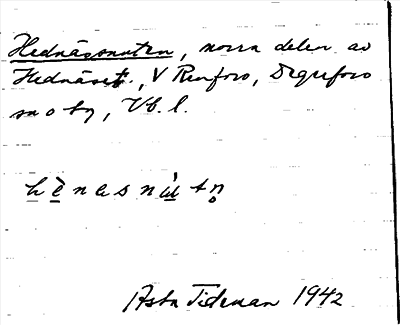 Hednäsnuten, norra delen av
Hednäset, V Renforo, Degerfors
sn o by, Vb. l.
hènasnùtn̥
Asta Tideman 1942